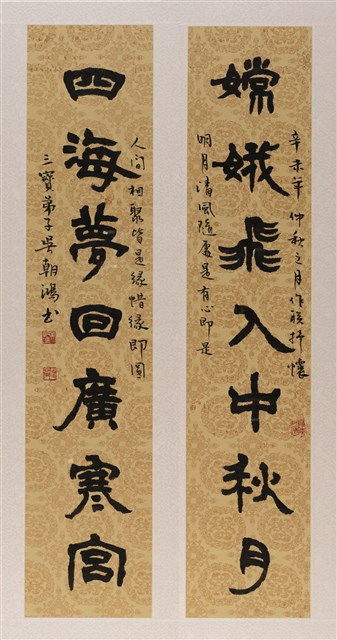 嫦娥飛入中秋月
辛未年仲秋之月作聯抒懷
明月清風隨處是有心即是
四海夢回廣寒宮
人間相聚皆是緣惜緣即圓
三寶弟子吳朝鴻書